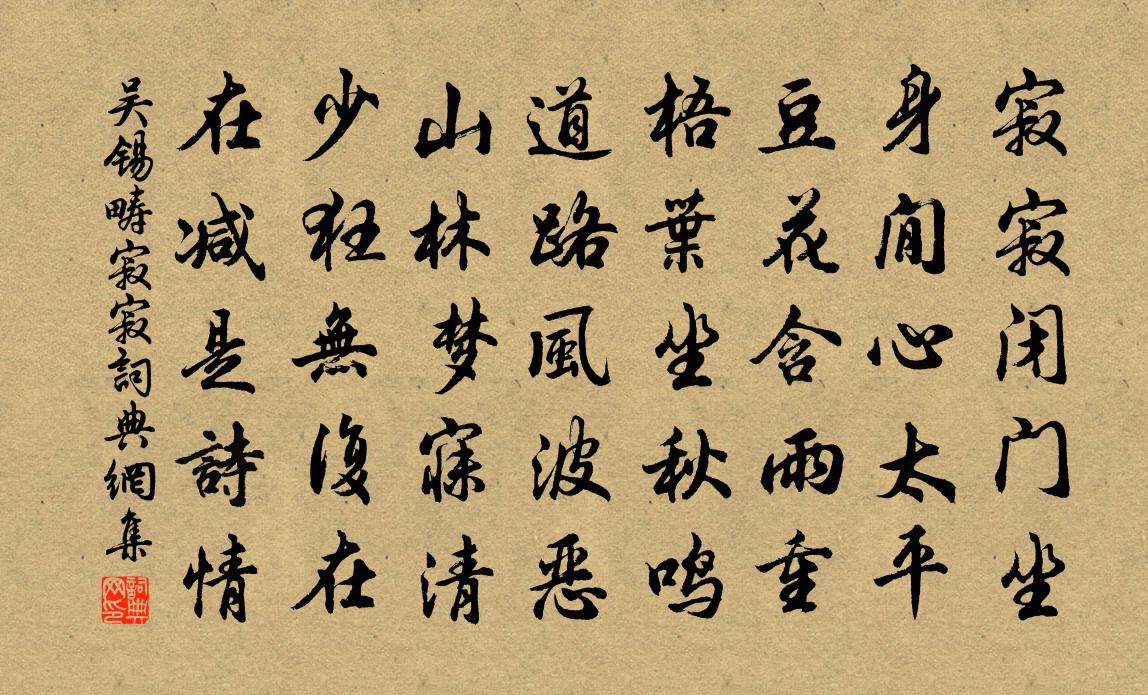 寂寂闭门坐
身閒心太平
豆花含雨重
梧葉坐秋鸣
道路風波恶
山林梦寐清
少狂無復在
在减是詩情
吴锡畴寂寂詞典網集
詞典网印